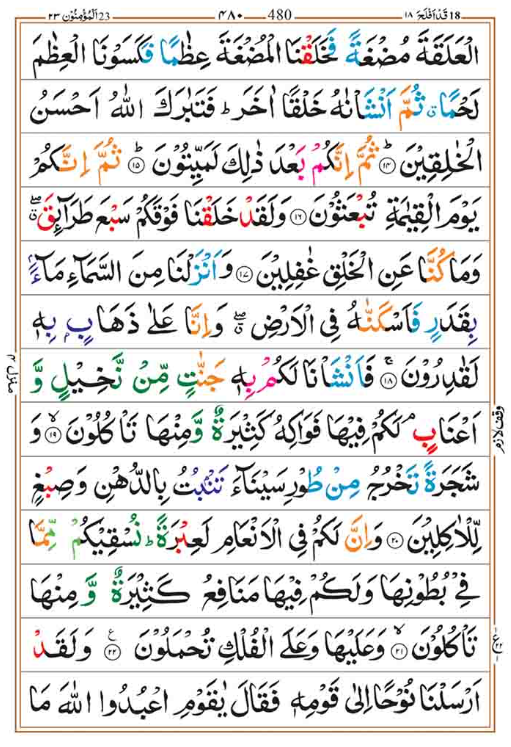 18 قد افلح ١٨ ٤٨٠ 480 23 المؤمنون ٢٣
الْعَلَقَةَ مُضْغَةً فَخَلَقْنَا الْمُضْغَةَ عِظٰمًا فَكَسَوْنَا الْعِظٰمَ
لَحْمًا ۗ ثُمَّ اَنْشَاْنٰهُ خَلْقًا اٰخَرَ ؕ فَتَبٰرَكَ اللّٰهُ اَحْسَنُ
الْخٰلِقِيْنَ ؕ ﴿۱۴﴾ ثُمَّ اِنَّكُمْ بَعْدَ ذٰلِكَ لَمَيِّتُوْنَ ؕ ﴿۱۵﴾ ثُمَّ اِنَّكُمْ
يَوْمَ الْقِيٰمَةِ تُبْعَثُوْنَ ﴿۱۶﴾ وَلَقَدْ خَلَقْنَا فَوْقَكُمْ سَبْعَ طَرَآئِقَ ۖ ۗ
وَمَا كُنَّا عَنِ الْخَلْقِ غٰفِلِيْنَ ﴿۱۷﴾ وَاَنْزَلْنَا مِنَ السَّمَآءِ مَآءًۢ
بِقَدَرٍ فَاَسْكَنّٰهُ فِى الْاَرْضِ ۖ ۗ وَاِنَّا عَلٰى ذَهَابٍۭ بِهٖ
لَقٰدِرُوْنَ ۚ ﴿۱۸﴾ فَاَنْشَاْنَا لَكُمْ بِهٖ جَنّٰتٍ مِّنْ نَّخِيْلٍ وَّ
اَعْنَابٍ ۘ لَكُمْ فِيْهَا فَوَاكِهُ كَثِيْرَةٌ وَّمِنْهَا تَاْكُلُوْنَ ۙ ﴿۱۹﴾ وَ
شَجَرَةً تَخْرُجُ مِنْ طُوْرِ سَيْنَآءَ تَنْۢبُتُ بِالدُّهْنِ وَصِبْغٍ
لِّلْاٰكِلِيْنَ ﴿۲۰﴾ وَاِنَّ لَكُمْ فِى الْاَنْعَامِ لَعِبْرَةً ؕ نُسْقِيْكُمْ مِّمَّا
فِىْ بُطُوْنِهَا وَلَكُمْ فِيْهَا مَنَافِعُ كَثِيْرَةٌ وَّمِنْهَا
تَاْكُلُوْنَ ۙ ﴿۲۱﴾ وَعَلَيْهَا وَعَلَى الْفُلْكِ تُحْمَلُوْنَ ﴿۲۲﴾ وَلَقَدْ
اَرْسَلْنَا نُوْحًا اِلٰى قَوْمِهٖ فَقَالَ يٰقَوْمِ اعْبُدُوا اللّٰهَ مَا
وقف لازم
منزل ۴